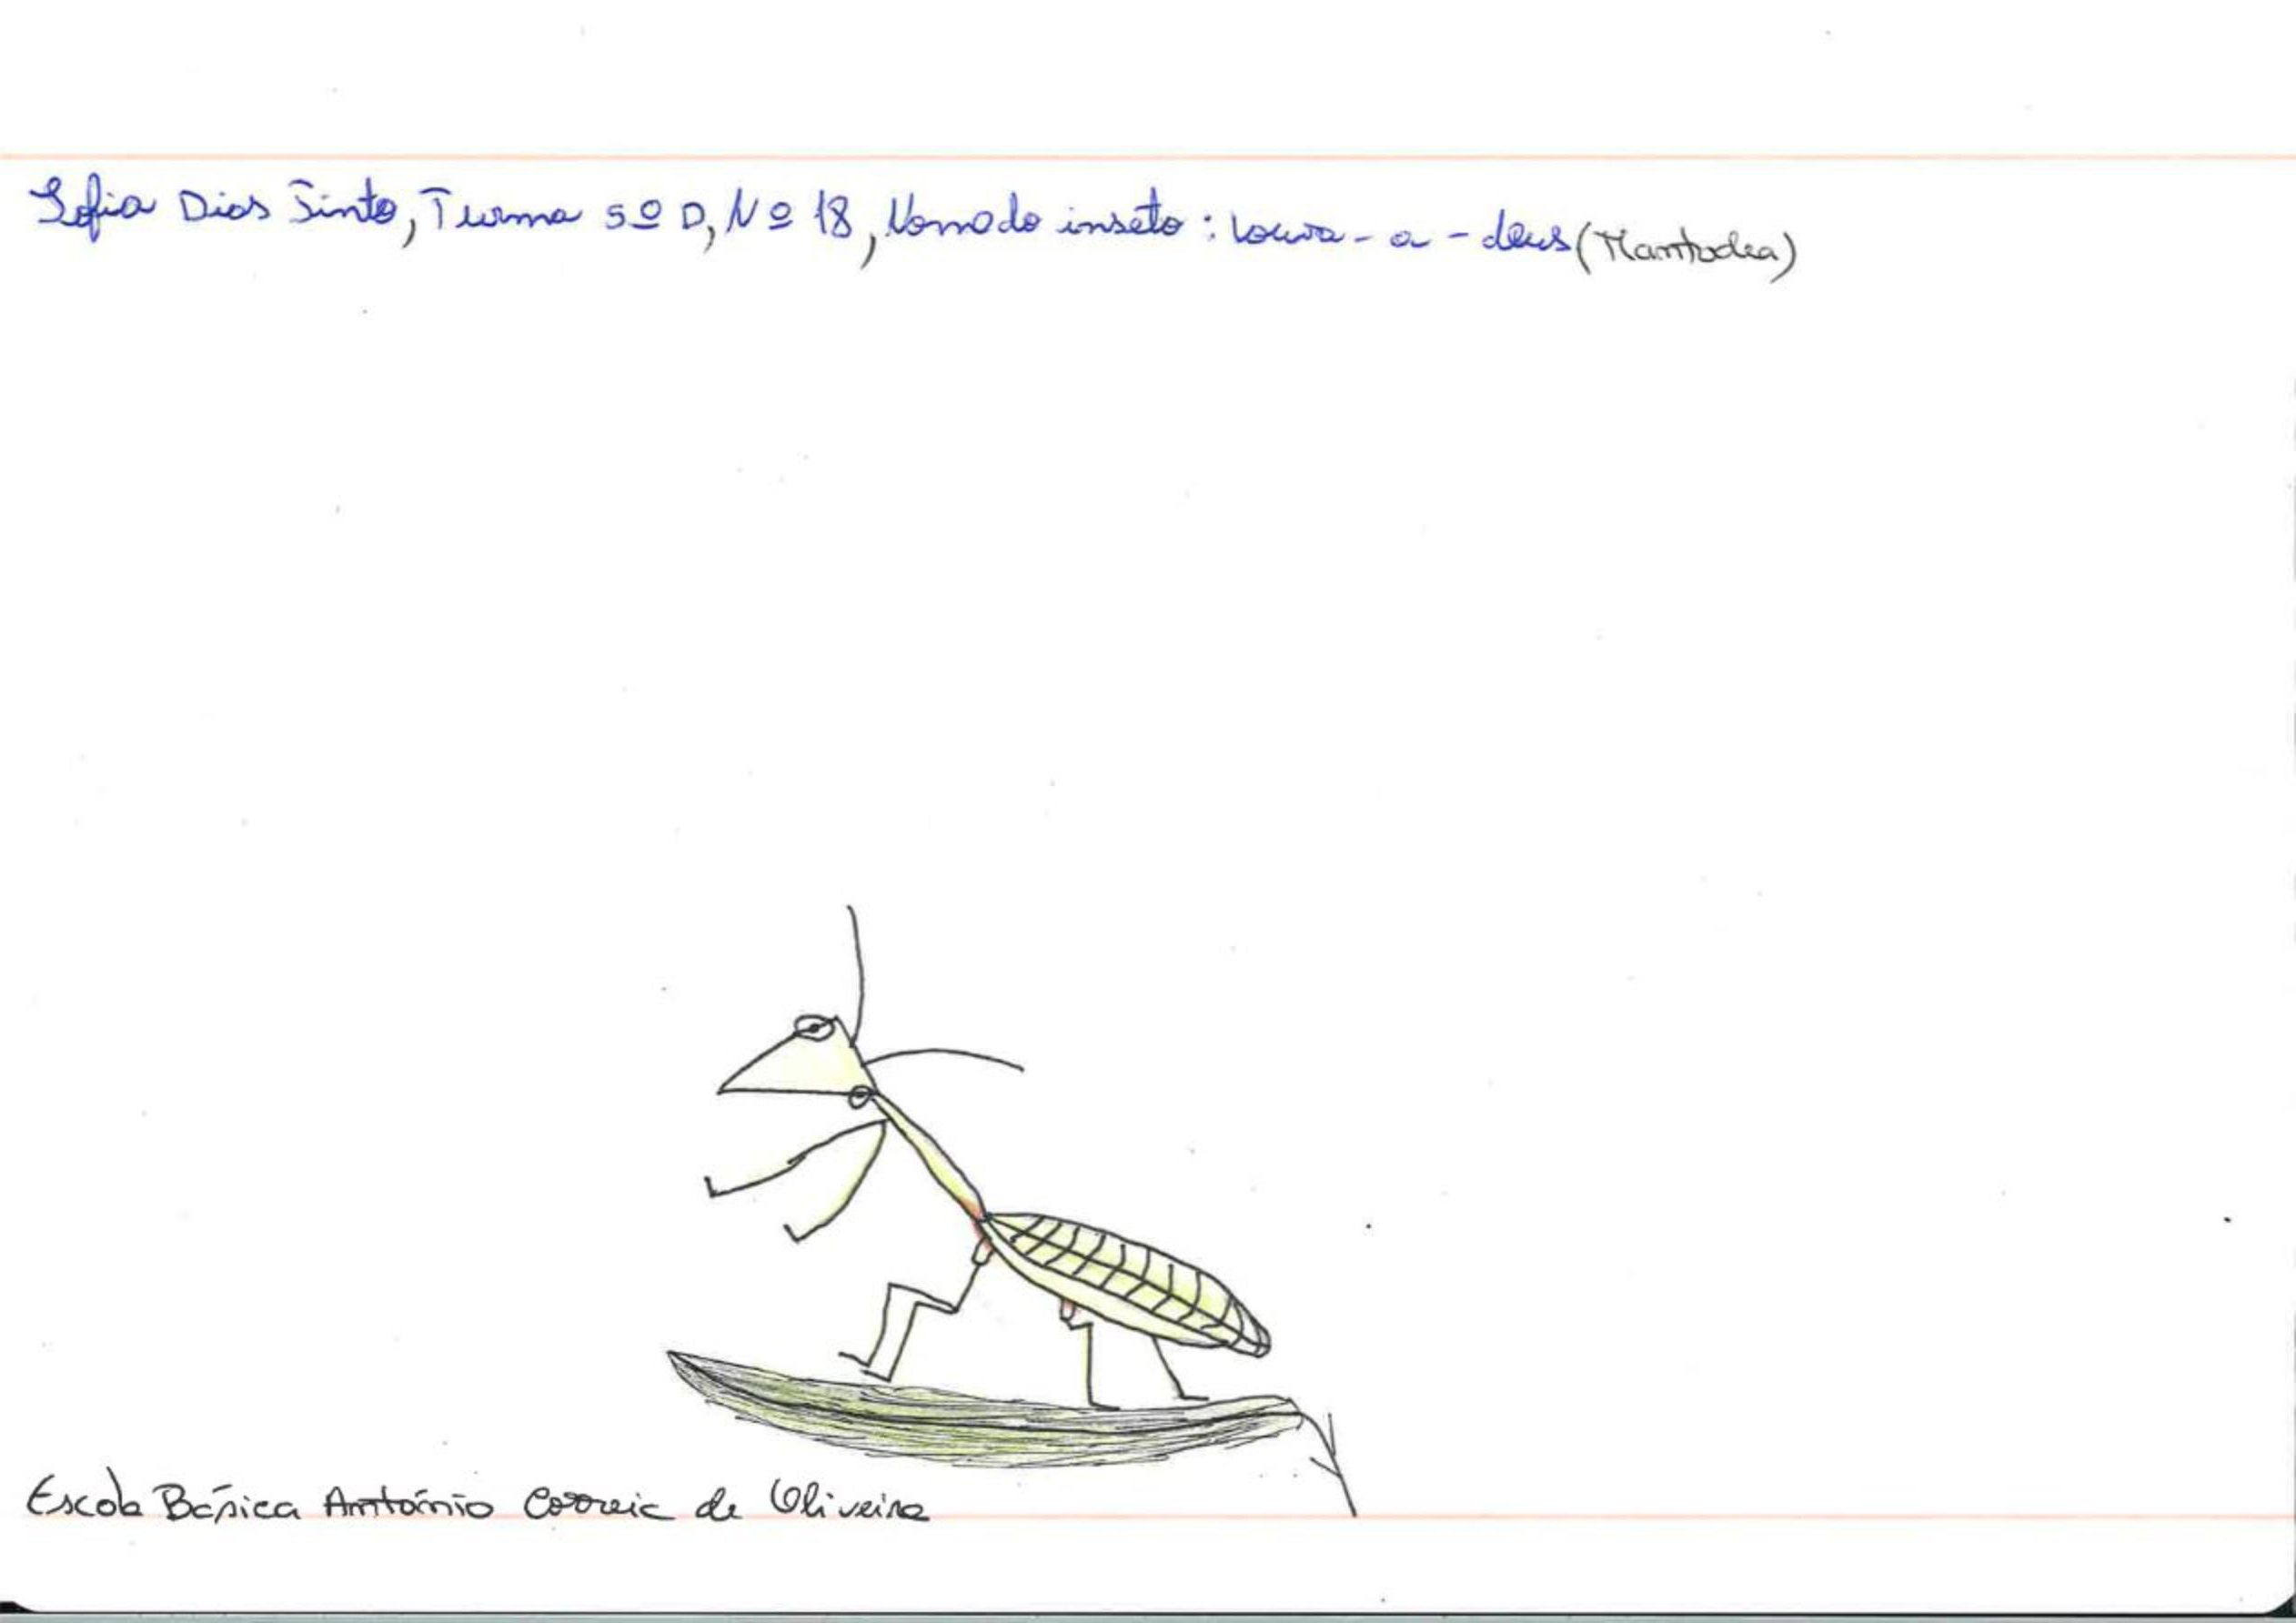 Sofia Dias Pinto, Turma 5º D, Nº 18, Nome do inseto: Louva-a-deus (Mantodea)
Escola Básica António Correia de Oliveira